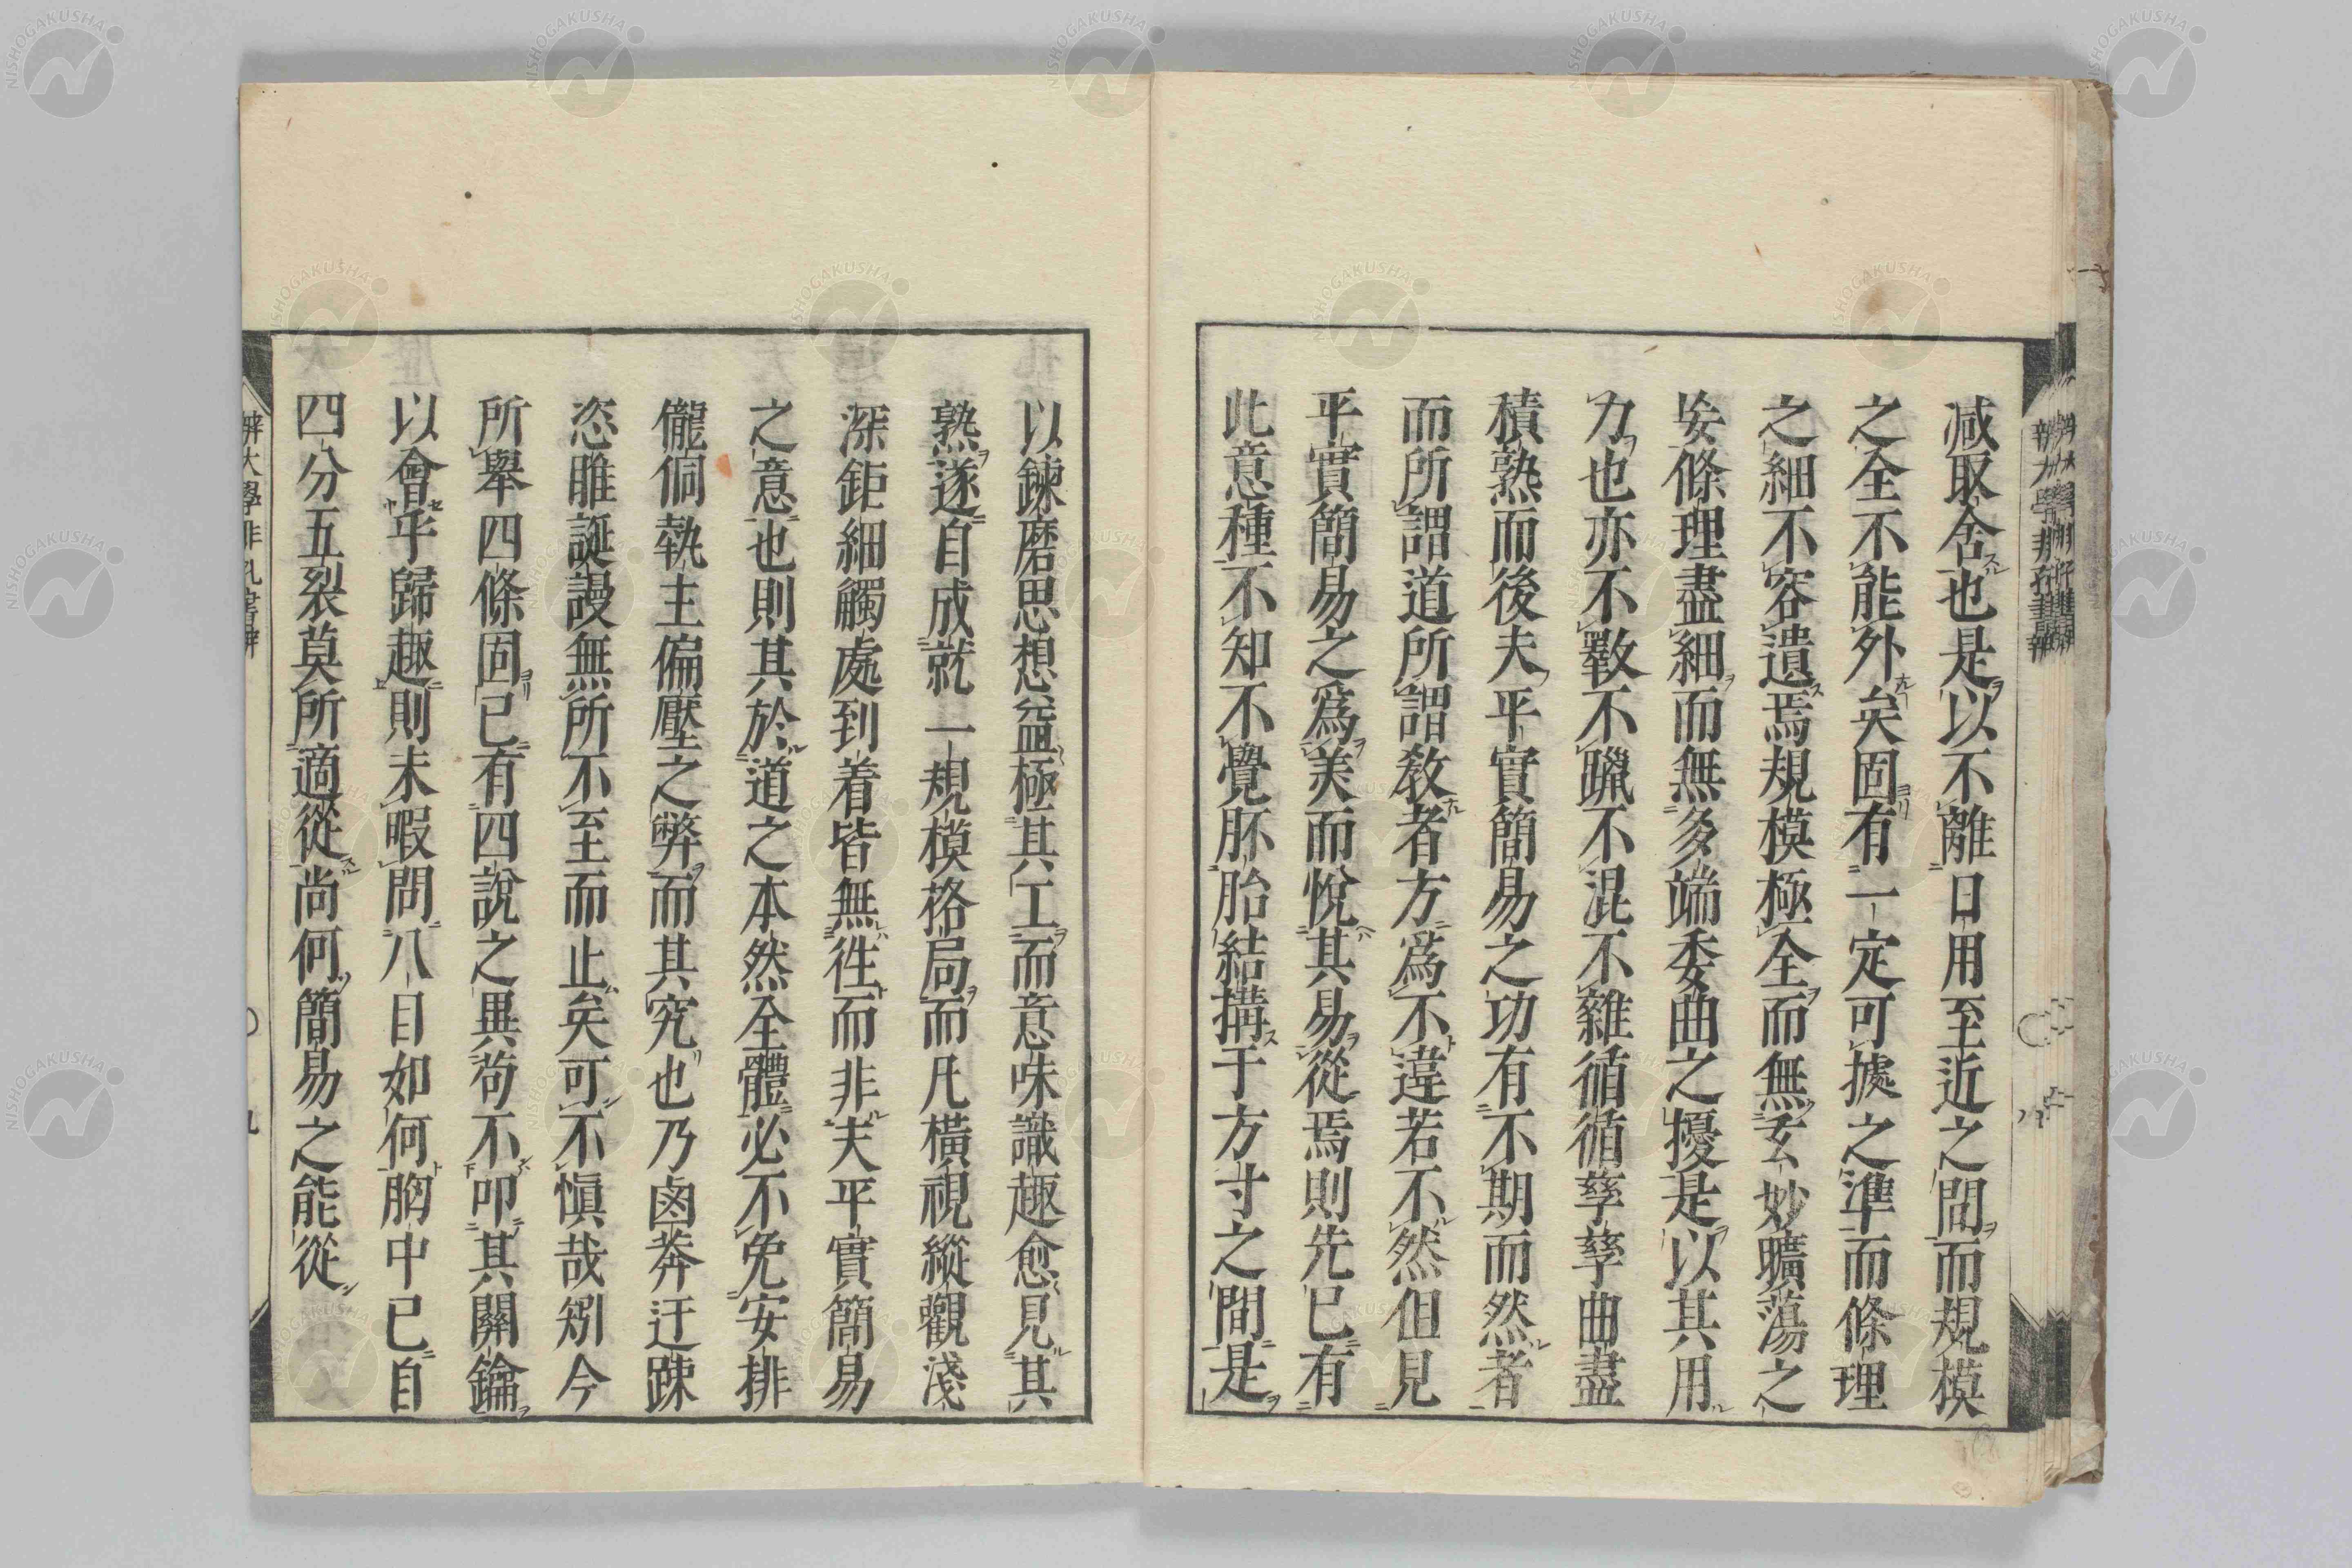 減取舍也是以不離日用至近之間而規模
之全不能外矣固有一定可據之準而條理
之細不容遺焉規模極全而無玄妙曠蕩之
妄條理盡細而無多端委曲之擾是以其用
力也亦不斁不躐不混不雜循循孳孳曲盡
積熟而後夫平實簡易之功有不期而然者
而所謂道所謂教者方爲不違若不然但見
平實簡易之爲美而悅其易從焉則先已有
此意種不知不覺胚胎結搆于方寸之間是
以鍊磨思想益極其工而意味識趣愈見其
熟遂自成就一規模格局而凡橫視縱觀淺
深鉅細觸處到着皆無徃而非夫平實簡易
之意也則其於道之本然全體必不免安排
儱侗執主偏壓之弊而其究也乃鹵莽迂踈
恣睢誕謾無所不至而止矣可不愼哉矧今
所舉四條固已有四說之異苟不叩其關鑰
以會乎歸趣則未暇問八目如何胸中已自
四分五裂莫所適從尚何簡易之能從
辨大學非孔書辨
九
NISHOGAKUSHA